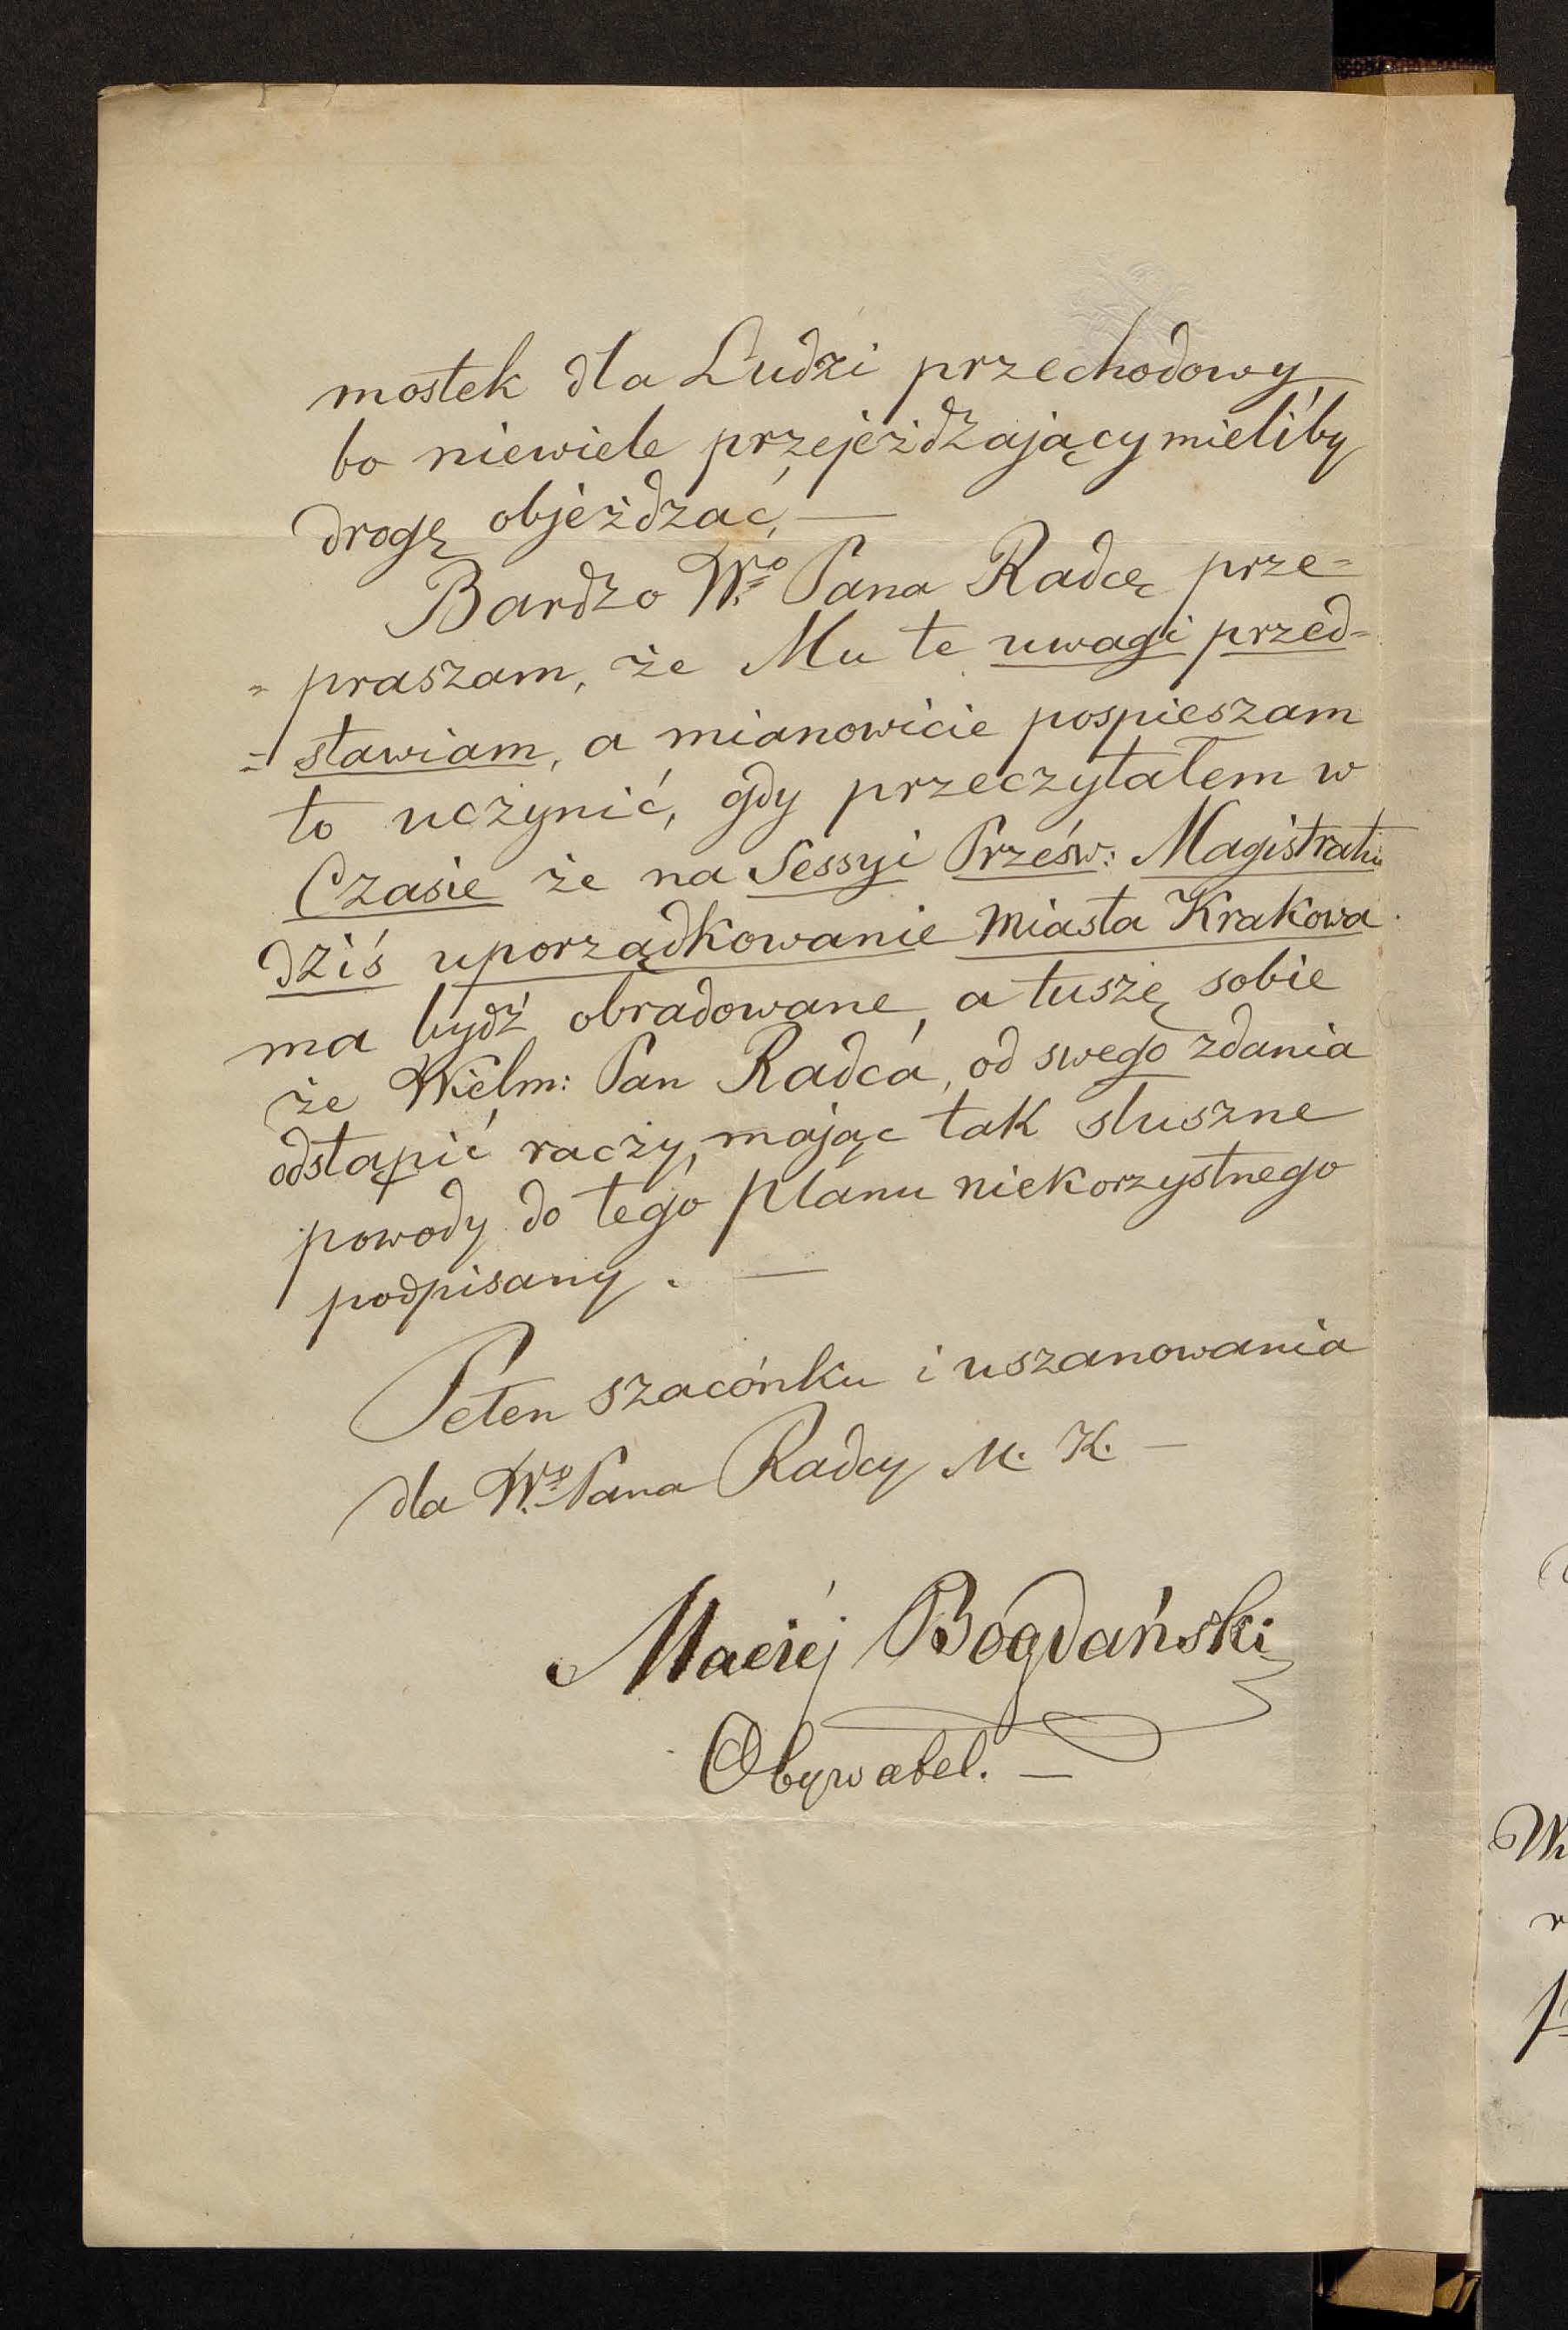 mostek dla Ludzi przechodowy,
bo niewiele przejeżdżający mieliby
drogę objeżdzać, —
Bardzo W.º Pana Radcę prze=
= praszam, że Mu te uwagi przed=
= stawiam, a mianowicie pospieszam
to uczynić, gdy przeczytałem w
Czasie że na Sessyi Prześw: Magistratu
dziś uporządkowanie miasta Krakowa
ma bydź obradowane, a tuszę sobie
że Wielm: Pan Radca, od swego zdania
odstąpić raczy, mając tak słuszne
powody do tego planu niekorzystnego
podpisany. —
Pełen szacónku i uszanowania
dla W.º Pana Radcy M. K. —
Maciéj Bogdański
Obywatel. —